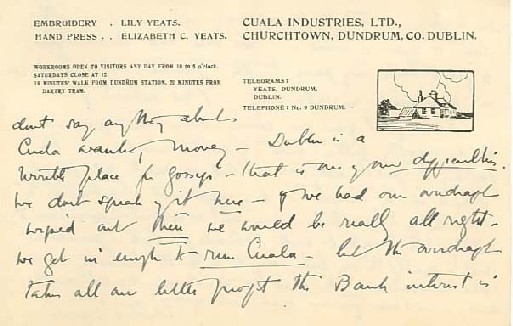 EMBROIDERY . LILY YEATS.
HAND PRESS . . ELIZABETH C. YEATS.
CUALA INDUSTRIES, LTD.,
CHURCHTOWN, DUNDRUM, CO. DUBLIN.
WORKROOMS OPEN TO VISITORS ANY DAY FROM 10 to 5 o'clock.
SATURDAYS CLOSE AT 12
16 MINUTES' WALK FROM DUNDRUM STATION, 20 MINUTES FROM
DARTRY TRAM.
TELEGRAMS:
YEATS, DUNDRUM,
DUBLIN.
TELEPHONE: No. 9 DUNDRUM.
dont say anything about
Cuala wanting money – Dublin is a
place for gossip – that is one of our difficulties
we dont speak of it here – if we had our overdraft
wiped out then we would be really all right –
we get in enough to run Cuala – but the overdraft
takes all our little profit the Bank interest is